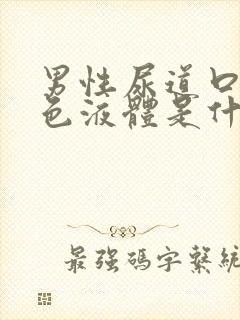 男性尿道口
色液體是什
最強碼字繫統